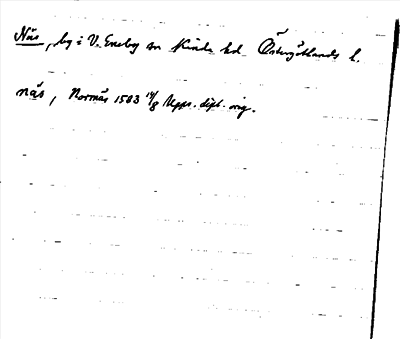 Näs, by i V. Eneby sn Kinda hd Östergötlands l.
näs, Normäs 1503 14/8 Upps. dipl. orig.